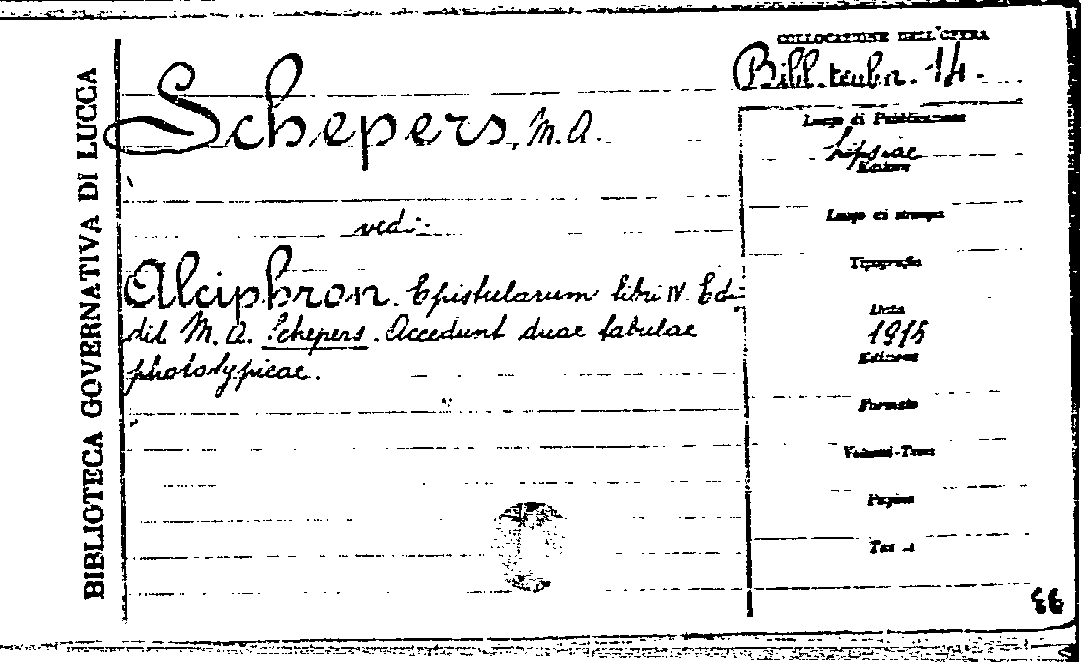 BIBLIOTECA GOVERNATIVA DI LUCCA
COLLOCAZIONE DELL'OPERA
Bibl. teubn. 14.
Schepers, M. A.
vedi:
Alciphron. Epistularum libri IV. Edi-
dit M. A. Schepers. Accedunt duae tabulae
phototypicae.
Luogo di Pubblicazione
Lipsiae
Editore
Luogo di stampa
Tipografia
Data
1915
Edizione
Formato
Volumi-Tomi
Pagine